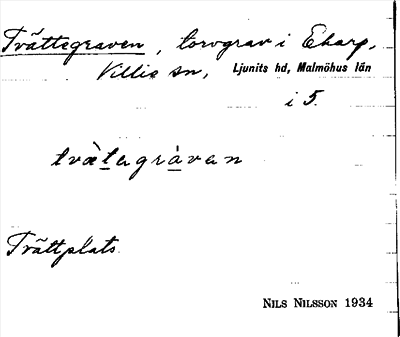 Tvättegraven, torvgrav i Ekarp,
Villie sn, Ljunits hd, Malmöhus län
i 5.
tvätagrávan
Tvättplats.
NILS NILSSON 1934